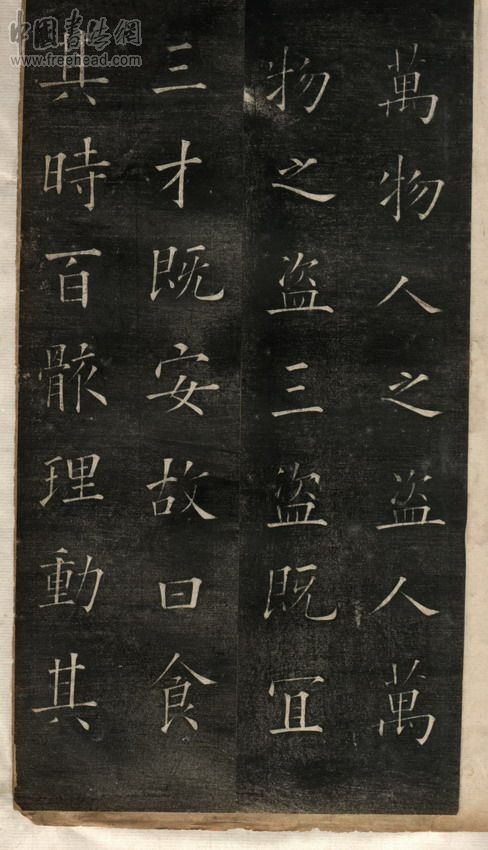 萬物人之盗人萬
物之盗三盗既冝
三才既安故曰食
其時百骸理動其
中國書法網
www.freehead.com